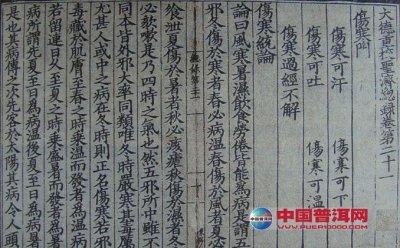 大德重校聖濟總錄卷第二十一
傷寒門
傷寒可汗 傷寒可下
傷寒可吐 傷寒可溫
傷寒過經不解
傷寒統論
論曰風寒暑濕飲食勞倦皆能為病是謂五
邪冬傷於寒者春必 傷於風者夏必
飧泄夏傷於暑者秋必痎瘧秋傷於濕者冬
必欬嗽是乃四時之氣也然五邪所中雖不
同本皆外邪大率同類唯冬時嚴寒其毒厲
尤甚人或中之病在冬時則正名傷寒若邪
毒藏於肌膚至春之時乘陽而發者為溫病
若留連日久至夏之時乘盛暑而發者為暑
病所謂先夏至日為病溫後夏至日為病暑
是也其病傳之次先客於太陽其病令人頭
中国普洱网
WWW.PUER10000.COM